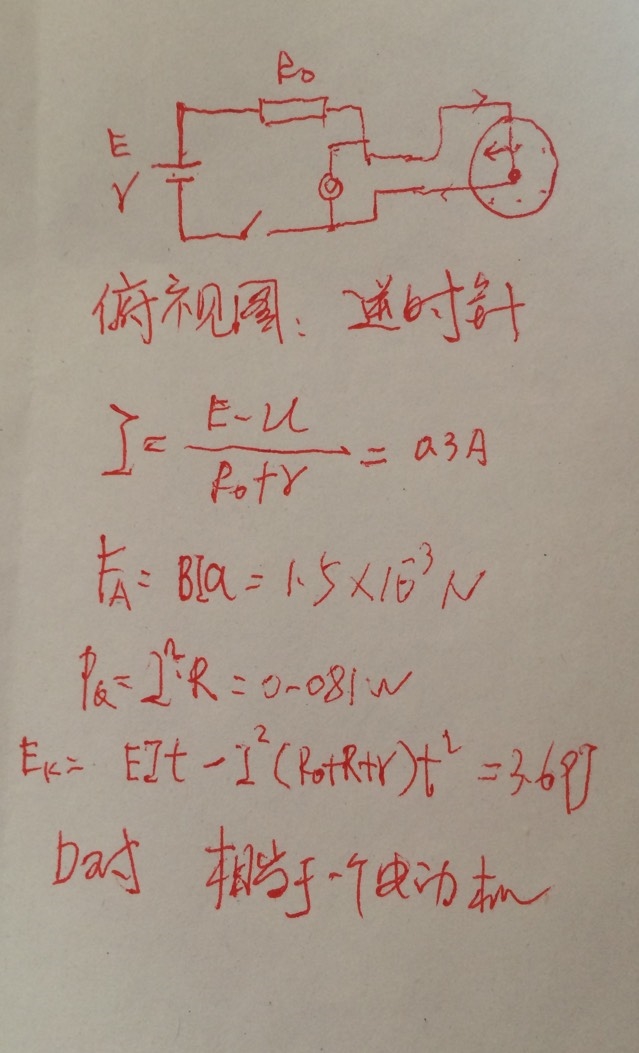 R₀
E
r
俯视图: 逆时针
I = (E-U)/(R₀+r) = 0.3A
F_A = BIa = 1.5×10⁻³ N
P_Q = I²R = 0.081W
E_K = EIt - I²(R₀+R+r)t = 3.69J
D对 相当于一个电动机